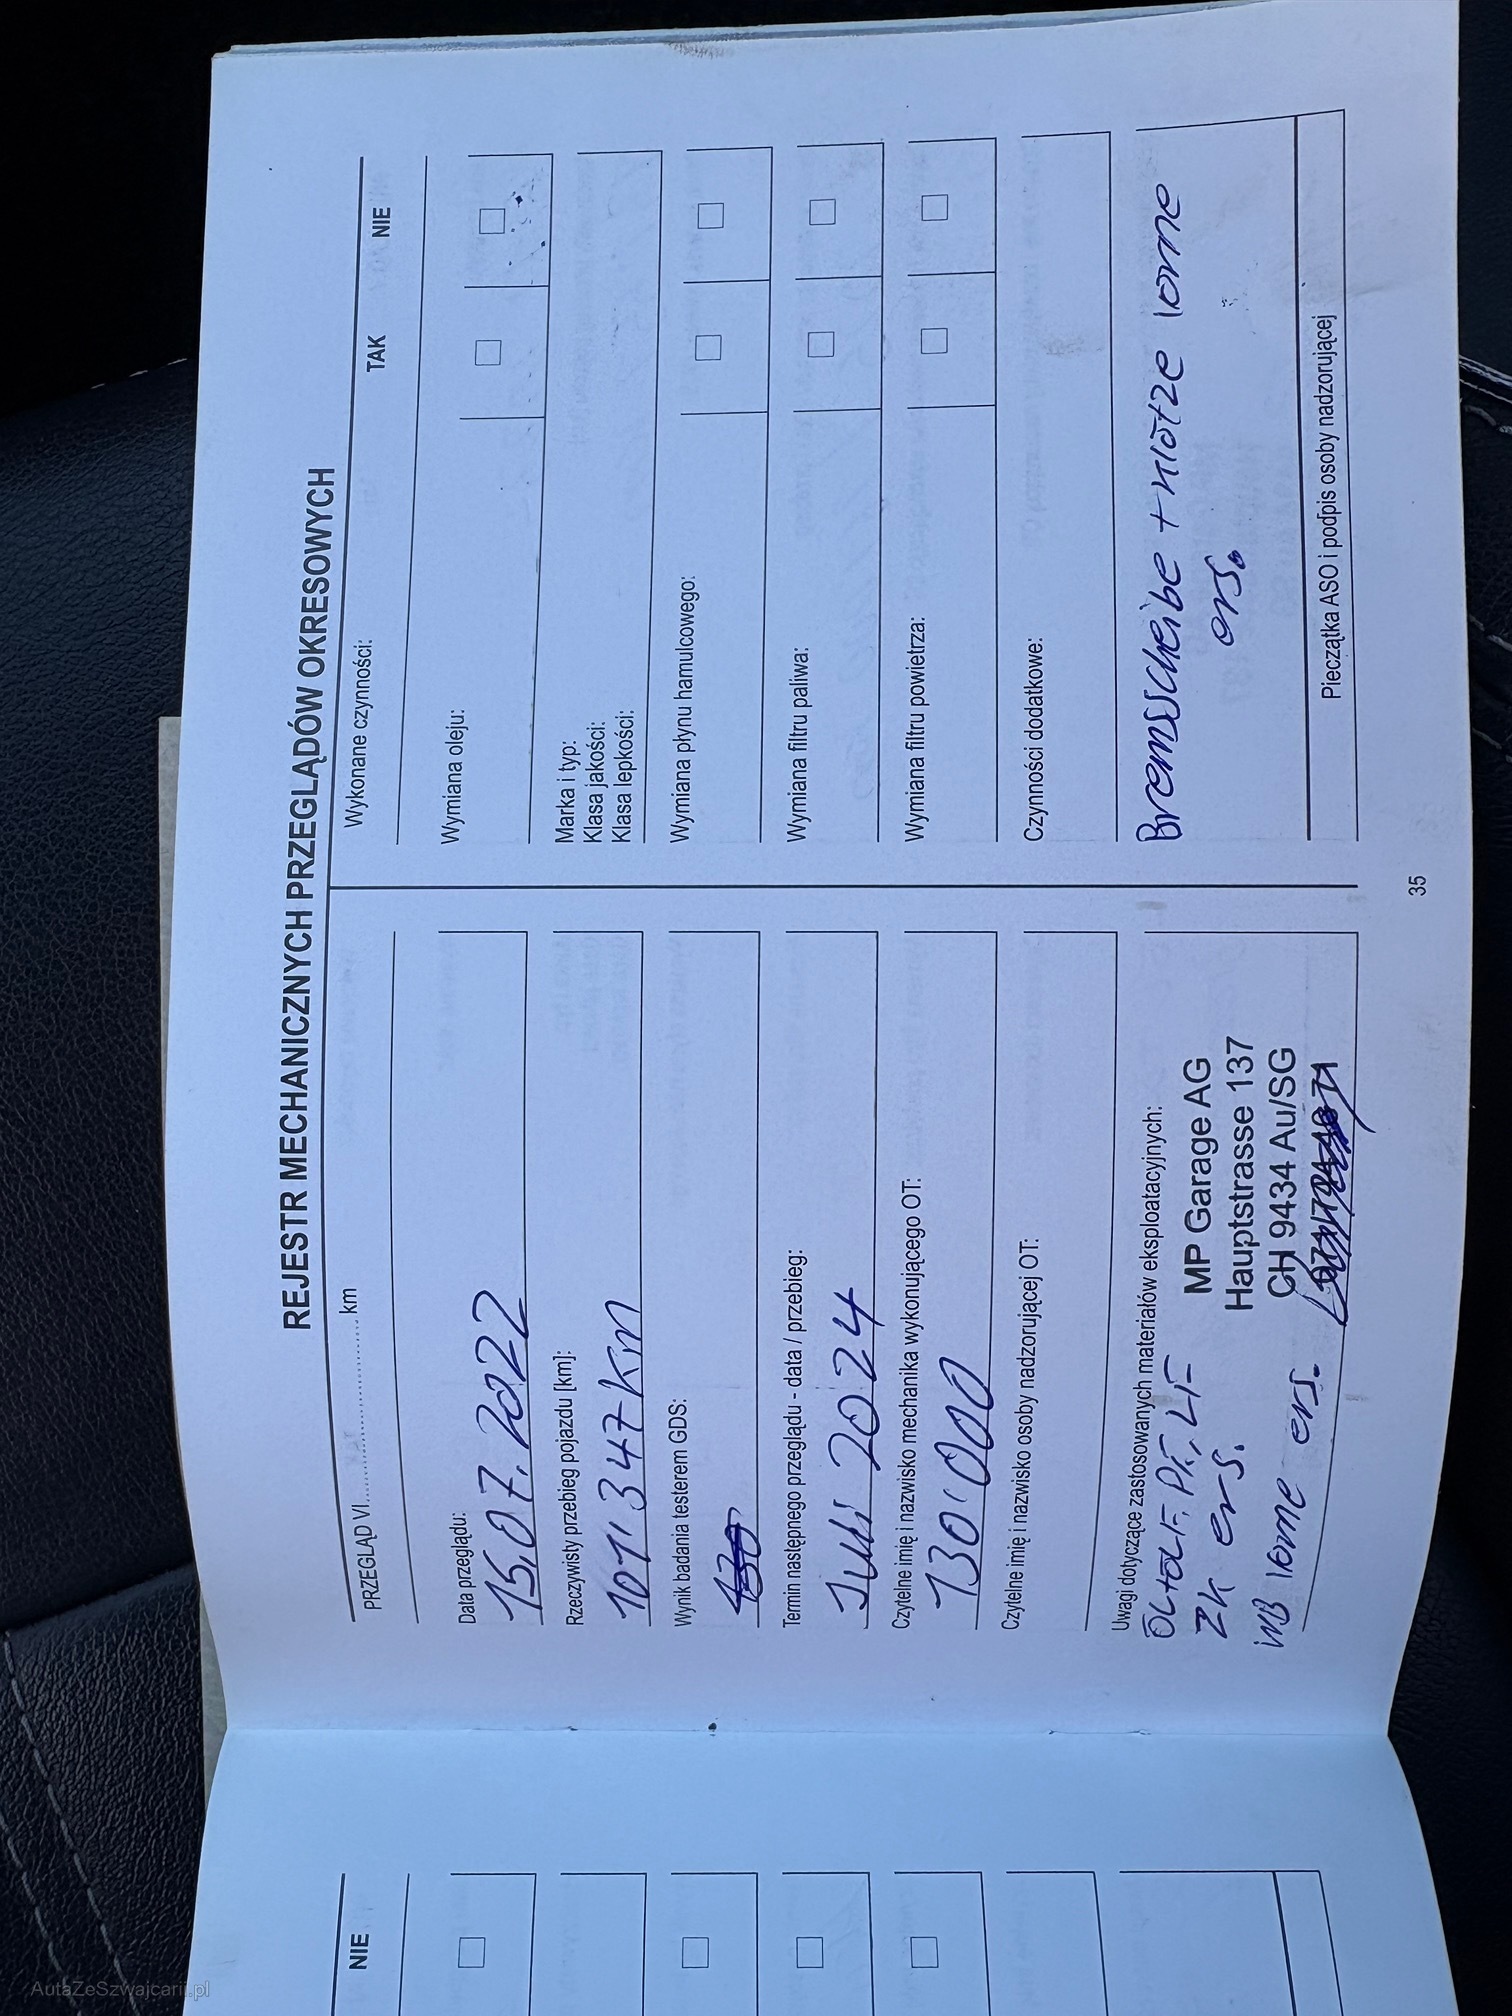 REJESTR MECHANICZNYCH PRZEGLĄDÓW OKRESOWYCH
PRZEGLĄD VI.......................... km
Data przeglądu:
15.07.2022
Rzeczywisty przebieg pojazdu [km]:
101'347 km
Wynik badania testerem GDS:
Termin następnego przeglądu - data / przebieg:
Juli 2024
Czytelne imię i nazwisko mechanika wykonującego OT:
130'000
Czytelne imię i nazwisko osoby nadzorującej OT:
Uwagi dotyczące zastosowanych materiałów eksploatacyjnych:
Öl+ölF, PF, LF
ZK ers.
WB vorne ers.
MP Garage AG
Hauptstrasse 137
CH 9434 Au/SG
Wykonane czynności:
TAK NIE
Wymiana oleju:
Marka i typ:
Klasa jakości:
Klasa lepkości:
Wymiana płynu hamulcowego:
Wymiana filtru paliwa:
Wymiana filtru powietrza:
Czynności dodatkowe:
Bremsscheibe + Klötze vorne
ers.
Pieczątka ASO i podpis osoby nadzorującej
35
NIE
AutaZeSzwajcarii.pl